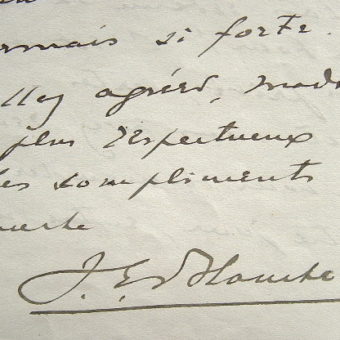 ermais si forte.
lley agréer, mad
plus respectueux
les compliments
J. E. Blanche